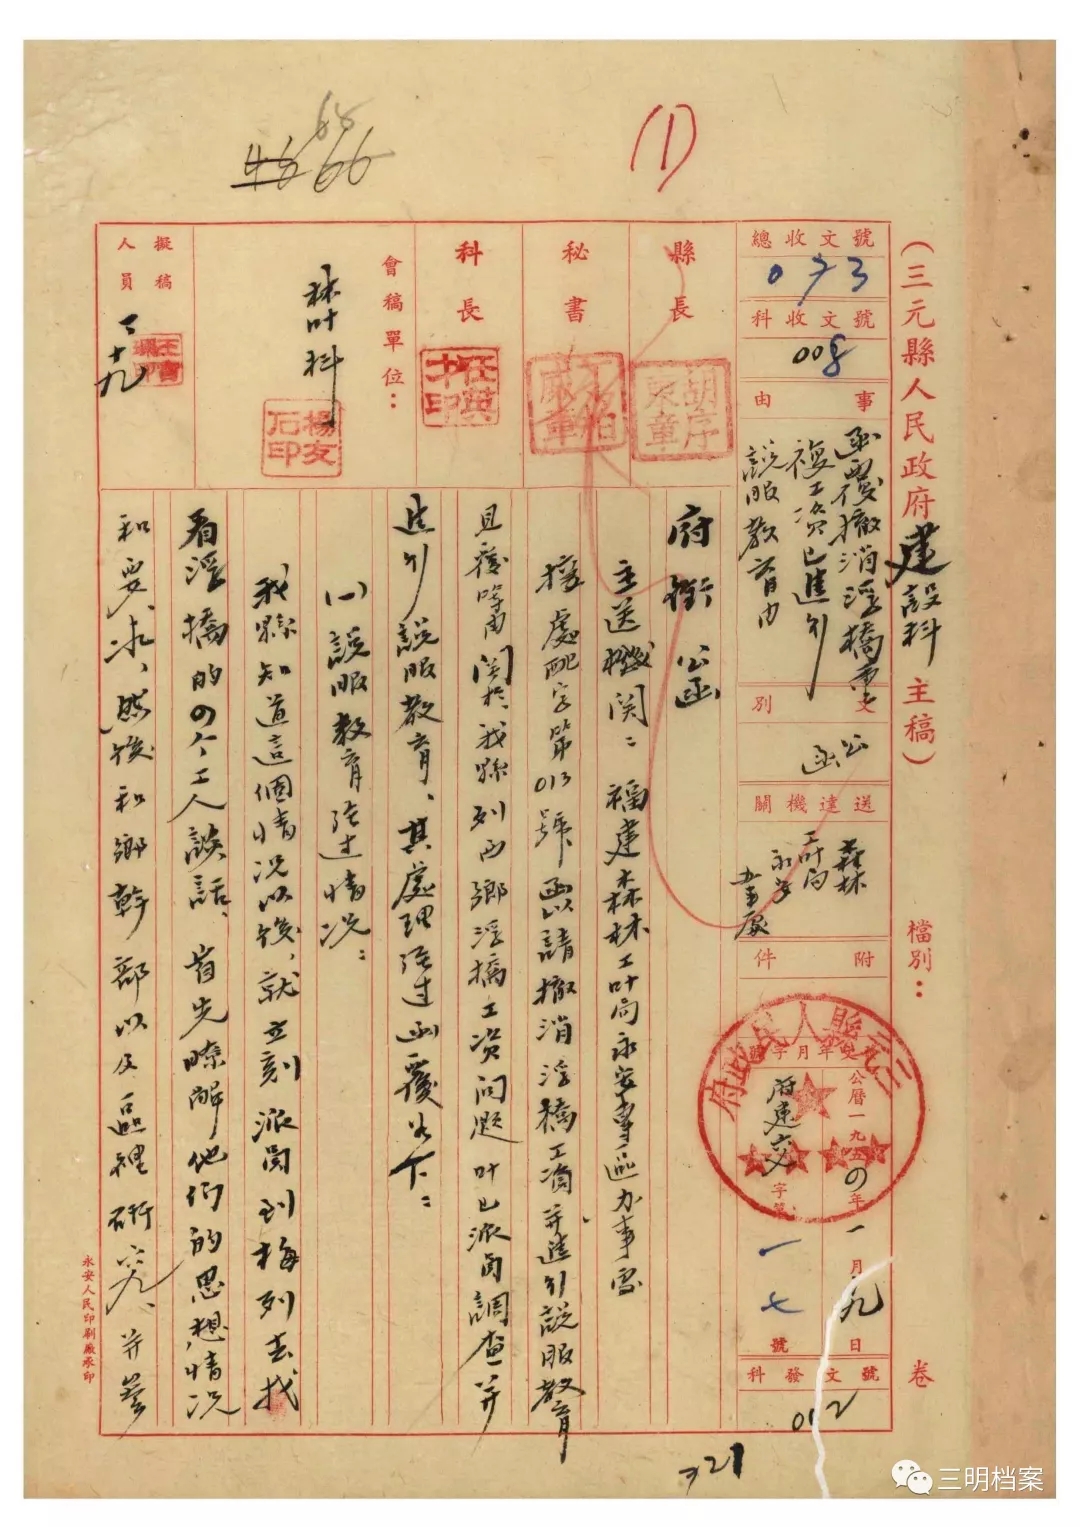 (1)
66
68
（三元縣人民政府建設科主稿）
檔別：
卷
總收文號
073
科收文號
008
事由
函覆撤消浮橋重
複工資已進行
說服教育由
文別
公函
送達機關
森林
工叶局
永安
办事處
附件
三元縣人民政府
公曆一九五四年一月九日
府建交字第一七號
科發文號
012
縣長
胡序
秘書
科長
任英才印
會稿單位：
林叶科
楊友石印
擬稿人員
十九
府銜 公函
主送機関：福建森林工叶局永安專區办事處
接處配字第013號函以請撤消浮橋工資并進行說服教育
且覆等由関於我縣列西鄉浮橋工資问题叶已派員調查并
進行說服教育、其處理經过函覆如下：
(一)說服教育經过情况：
我縣知道這個情况以後，就立刻派員到梅列去找
看浮橋的四个工人談話、首先瞭解他们的思想情况
和要求、然後和鄉幹部以及區裡研究、并
永安人民印刷廠承印
321
三明档案